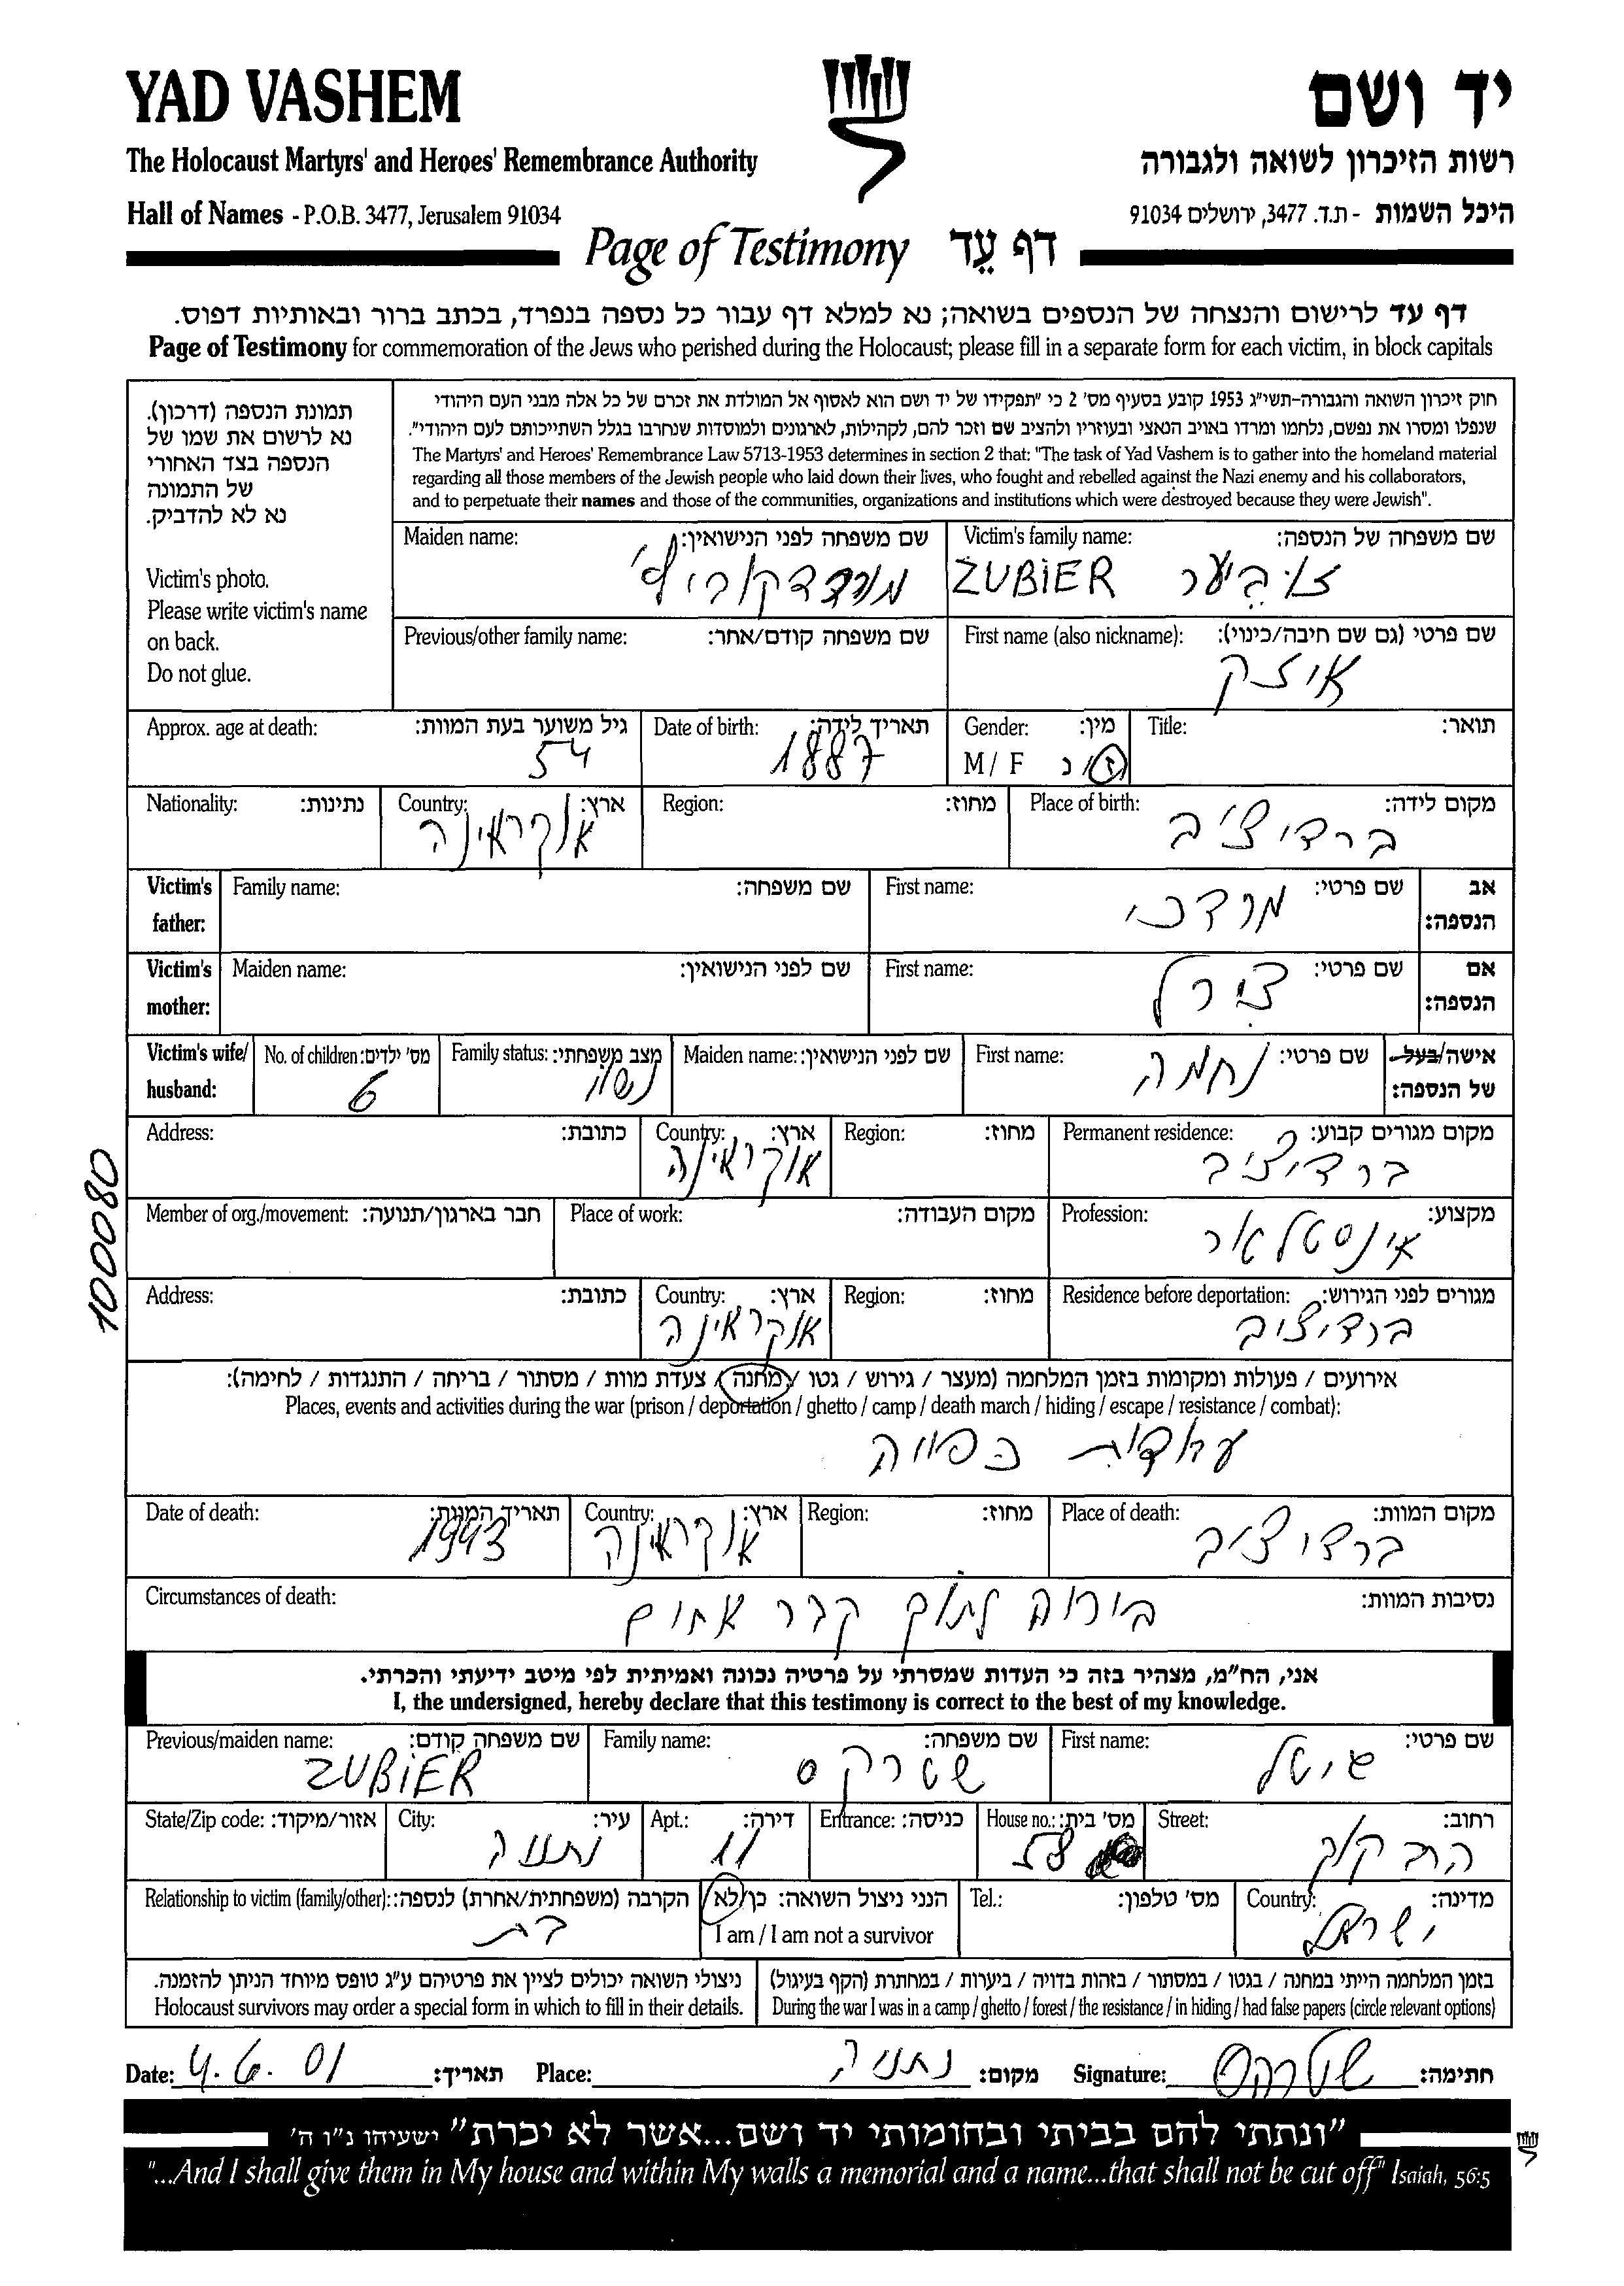 YAD VASHEM
יד ושם
The Holocaust Martyrs' and Heroes' Remembrance Authority
רשות הזיכרון לשואה ולגבורה
Hall of Names - P.O.B. 3477, Jerusalem 91034
היכל השמות - ת.ד. 3477, ירושלים 91034
Page of Testimony דף עֵד
דף עד לרישום והנצחה של הנספים בשואה; נא למלא דף עבור כל נספה בנפרד, בכתב ברור ובאותיות דפוס.
Page of Testimony for commemoration of the Jews who perished during the Holocaust; please fill in a separate form for each victim, in block capitals
תמונת הנספה (דרכון).
נא לרשום את שמו של
הנספה בצד האחורי
של התמונה
נא לא להדביק.
Victim's photo.
Please write victim's name
on back.
Do not glue.
חוק זיכרון השואה והגבורה-תשי"ג 1953 קובע בסעיף מס' 2 כי "תפקידו של יד ושם הוא לאסוף אל המולדת את זכרם של כל אלה מבני העם היהודי
שנפלו ומסרו את נפשם, נלחמו ומרדו באויב הנאצי ובעוזריו ולהציב שם וזכר להם, לקהילות, לארגונים ולמוסדות שנחרבו בגלל השתייכותם לעם היהודי".
The Martyrs' and Heroes' Remembrance Law 5713-1953 determines in section 2 that: "The task of Yad Vashem is to gather into the homeland material
regarding all those members of the Jewish people who laid down their lives, who fought and rebelled against the Nazi enemy and his collaborators,
and to perpetuate their names and those of the communities, organizations and institutions which were destroyed because they were Jewish".
Victim's family name: שם משפחה של הנספה:
ZUBIER זוביער
Maiden name: שם משפחה לפני הנישואין:
First name (also nickname): שם פרטי (גם שם חיבה/כינוי):
איזק
Previous/other family name: שם משפחה קודם/אחר:
Title: תואר:
Gender: מין:
M / F ז/נ
Date of birth: תאריך לידה:
1887
Approx. age at death: גיל משוער בעת המוות:
54
Place of birth: מקום לידה:
ברדיציב
Region: מחוז:
Country: ארץ:
אוקראינה
Nationality: נתינות:
Victim's father: אב הנספה:
First name: שם פרטי:
מרדכי
Family name: שם משפחה:
Victim's mother: אם הנספה:
First name: שם פרטי:
צירל
Maiden name: שם לפני הנישואין:
Victim's wife/ husband: אישה/בעל של הנספה:
First name: שם פרטי:
נחמה
Maiden name: שם לפני הנישואין:
Family status: מצב משפחתי:
נשוי
No. of children: מס' ילדים:
6
Permanent residence: מקום מגורים קבוע:
ברדיציב
Region: מחוז:
Country: ארץ:
אוקראינה
Address: כתובת:
Profession: מקצוע:
אינסטלאר
Place of work: מקום העבודה:
Member of org./movement: חבר בארגון/תנועה:
Residence before deportation: מגורים לפני הגירוש:
ברדיציב
Region: מחוז:
Country: ארץ:
אוקראינה
Address: כתובת:
אירועים / פעולות ומקומות בזמן המלחמה (מעצר / גירוש / גטו / מחנה / צעדת מוות / מסתור / בריחה / התנגדות / לחימה):
Places, events and activities during the war (prison / deportation / ghetto / camp / death march / hiding / escape / resistance / combat):
עבדות כפויה
Place of death: מקום המוות:
ברדיציב
Region: מחוז:
Country: ארץ:
אוקראינה
Date of death: תאריך המוות:
1943
Circumstances of death: נסיבות המוות:
ביריה לתוך קבר אחים
אני, הח"מ, מצהיר בזה כי העדות שמסרתי על פרטיה נכונה ואמיתית לפי מיטב ידיעתי והכרתי.
I, the undersigned, hereby declare that this testimony is correct to the best of my knowledge.
First name: שם פרטי:
Family name: שם משפחה:
שטרקס
Previous/maiden name: שם משפחה קודם:
ZUBIER
Street: רחוב:
הרב קוק
House no.: מס' בית:
58
Entrance: כניסה:
Apt.: דירה:
11
City: עיר:
נתניה
State/Zip code: אזור/מיקוד:
Country: מדינה:
ישראל
Tel.: מס' טלפון:
הנני ניצול השואה: כן/לא
I am / I am not a survivor
Relationship to victim (family/other): הקרבה (משפחתית/אחרת) לנספה:
בת
בזמן המלחמה הייתי במחנה / בגטו / במסתור / בזהות בדויה / ביערות / במחתרת (הקף בעיגול)
During the war I was in a camp / ghetto / forest / the resistance / in hiding / had false papers (circle relevant options)
ניצולי השואה יכולים לציין את פרטיהם ע"ג טופס מיוחד הניתן להזמנה.
Holocaust survivors may order a special form in which to fill in their details.
Date: 4.6.01 תאריך: Place: נתניה מקום: Signature: חתימה:
"ונתתי להם בביתי ובחומותי יד ושם...אשר לא יכרת" ישעיהו נ"ו ה'
"...And I shall give them in My house and within My walls a memorial and a name...that shall not be cut off" Isaiah, 56:5
100080